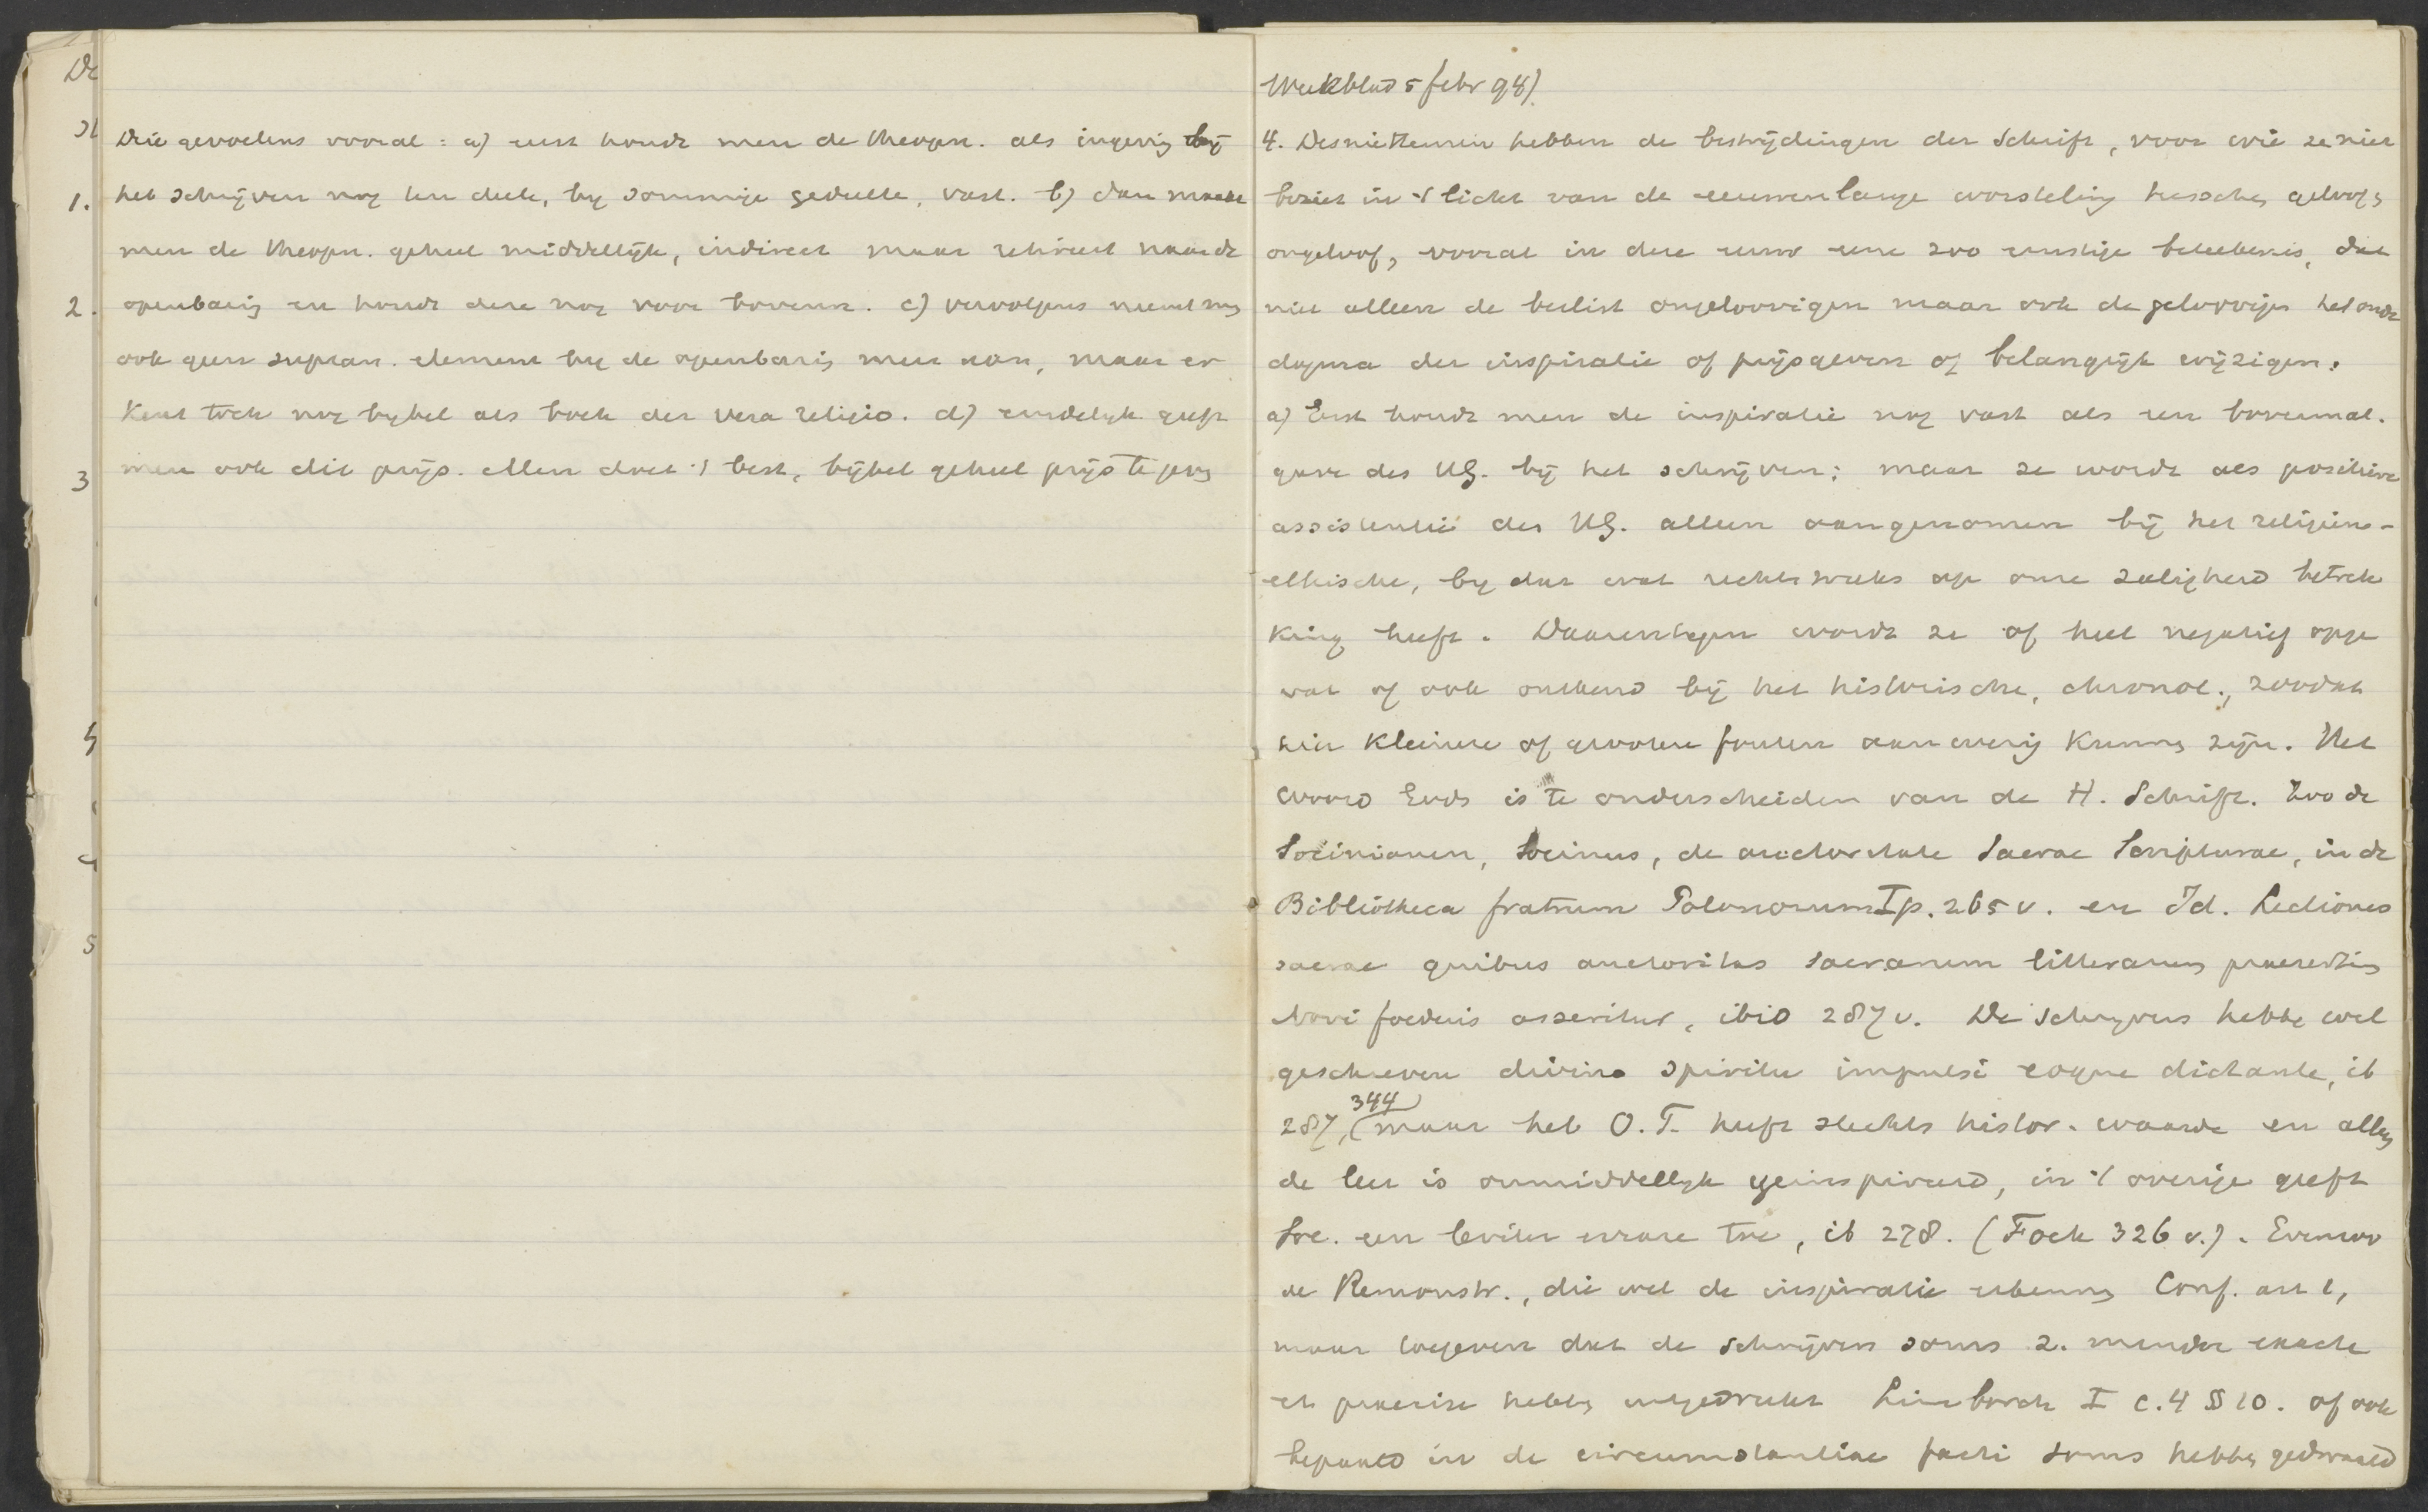 De
1.
2.
3
4
5
Drie gevoelens vooral: a) eerst houdt men de theopn. als ingeving bij
het schrijven nog ten deele, by sommige gedeelten, vast. b) dan maakt
men de theopn. geheel middellijk, indirect maar schrift naar de
openbaring en houdt deze nog voor bovenn. c) vervolgens neemt men
ook geen supran. element by de openbaring meer aan, maar er
kent toch nog bybel als boek der vera religio. d) eindelyk geeft
men ook dit prijs. Men doet 't best, bijbel geheel prijs te geven
Weekblad 5 febr 94).
4. Desniettemin hebben de bestrijdingen der Schrift, voor wie ze niet
beziet in 't licht van de eeuwenlange worsteling tusschen geloof en
ongeloof, vooral in deze eeuw eene zoo ernstige beteekenis, dat
niet alleen de beslist ongeloovigen maar ook de geloovigen het oude
dogma der inspiratie of prijsgeven of belangrijk wijzigen.
a) Eerst houdt men de inspiratie nog vast als een bovennat.
gave des HG. bij het schrijven; maar ze wordt als positieve
assistentie des HG. alleen aangenomen bij het religieus-
ethische, by dat wat rechtstreeks op onze zaligheid betrek
king heeft. Daarentegen wordt ze of heel negatief opge
vat of ook ontkend bij het historische, chronol., zoodat
hier kleinere of grootere fouten aanwezig kunnen zijn. Het
woord Gods is te onderscheiden van de H. Schrift. Zoo de
Socinianen, Socinus, de auctoritate Sacrae Scripturae, in de
Bibliotheca fratrum Polonorum I p. 265 v. en Id. Lectiones
sacrae quibus auctoritas sacrarum litterarum praesertim
Novi foederis asseritur, ibid 287 v. De schryvers hebben wel
geschreven divino spiritu impulsi eoque dictante, ib
287, 344 (maar het O. T. heeft slechts histor. waarde en alleen
de leer is onmiddellyk geinspireerd, in 't overige geeft
Soc. een leviter errare toe, ib 278. (Fock 326 v.). Evenzoo
de Remonstr., die wel de inspiratie erkennen Conf. art 1,
maar toegeven dat de schrijvers soms z. minder exacte
et praecise hebben uitgedrukt Limborch I c. 4 § 10. of ook
bepaald in de circumstantiae facti soms hebben gedwaald